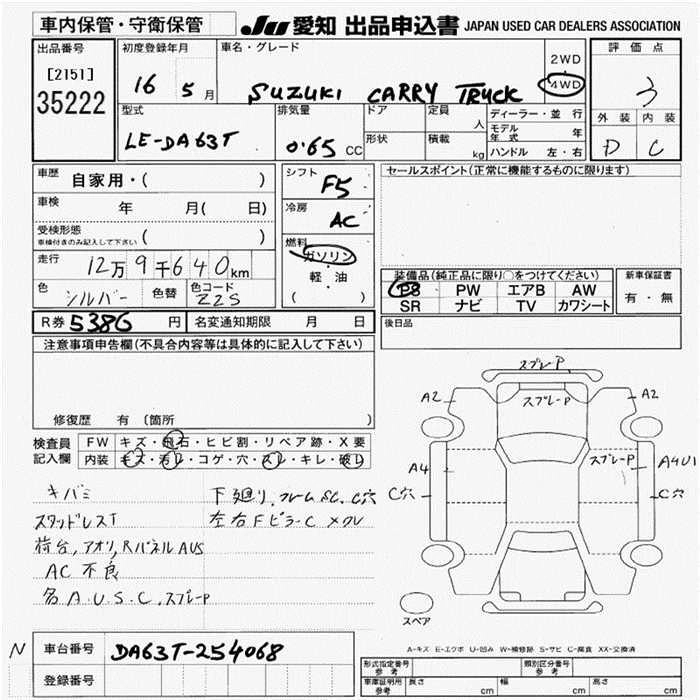 車内保管・守衛保管
JU 愛知 出品申込書 JAPAN USED CAR DEALERS ASSOCIATION
出品番号
[2151]
35222
初度登録年月
16 5月
車名・グレード
SUZUKI CARRY TRUCK
2WD
4WD
評価点
3
外装 内装
D C
型式
LE-DA63T
排気量
0.65 CC
ドア
形状
定員
人
積載
kg
ディーラー・並行
モデル年式 年
ハンドル 左・右
車歴
自家用・( )
車検 年 月( 日)
受検形態
車検付きのみ記入して下さい ( )
走行
12万9千640km
色 シルバー 色替 色コード Z2S
シフト
F5
冷房
AC
燃料
ガソリン
軽・油
( )
セールスポイント(正常に機能するものに限ります)
装備品(純正品に限り○をつけてください)
PS PW エアB AW
SR ナビ TV カワシート
新車保証書
有・無
後日品
R券 5386 円 名変通知期限 月 日
注意事項申告欄(不具合内容等は具体的に記入して下さい)
修復歴 有〔箇所 〕
検査員記入欄
FW キズ・飛石・ヒビ割・リペア跡・X要
内装 キズ・汚レ・コゲ・穴・スレ・キレ・破レ
キバミ
スタッドレスT
荷台,アオリ,RパネルAUS
AC不良
各A.U.S.C,スプレーP
下廻り,フレームSC,C穴
左右FピラーC メクレ
スプレーP
スプレーP
A2
A2
A4
スプレーP
A4U1
C穴
C穴
スペア
A-キズ E-エクボ U-凹み W-補修跡 S-サビ C-腐食 XX-交換済
N
車台番号 DA63T-254068
登録番号
形式指定番号 参考
類別区分番号 参考
車庫証明用 参考
長さ cm
幅 cm
高さ cm